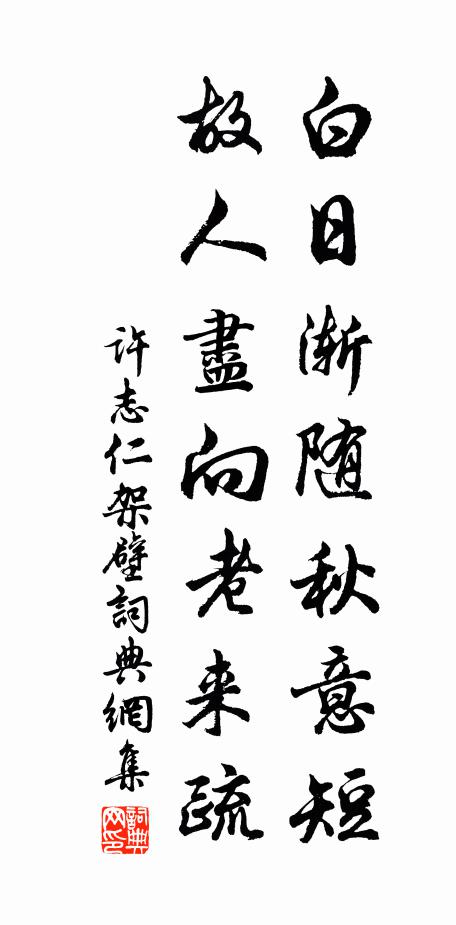 白日渐随秋意短
故人盡向老来疏
许志仁架壁詞典網集
詞典网印